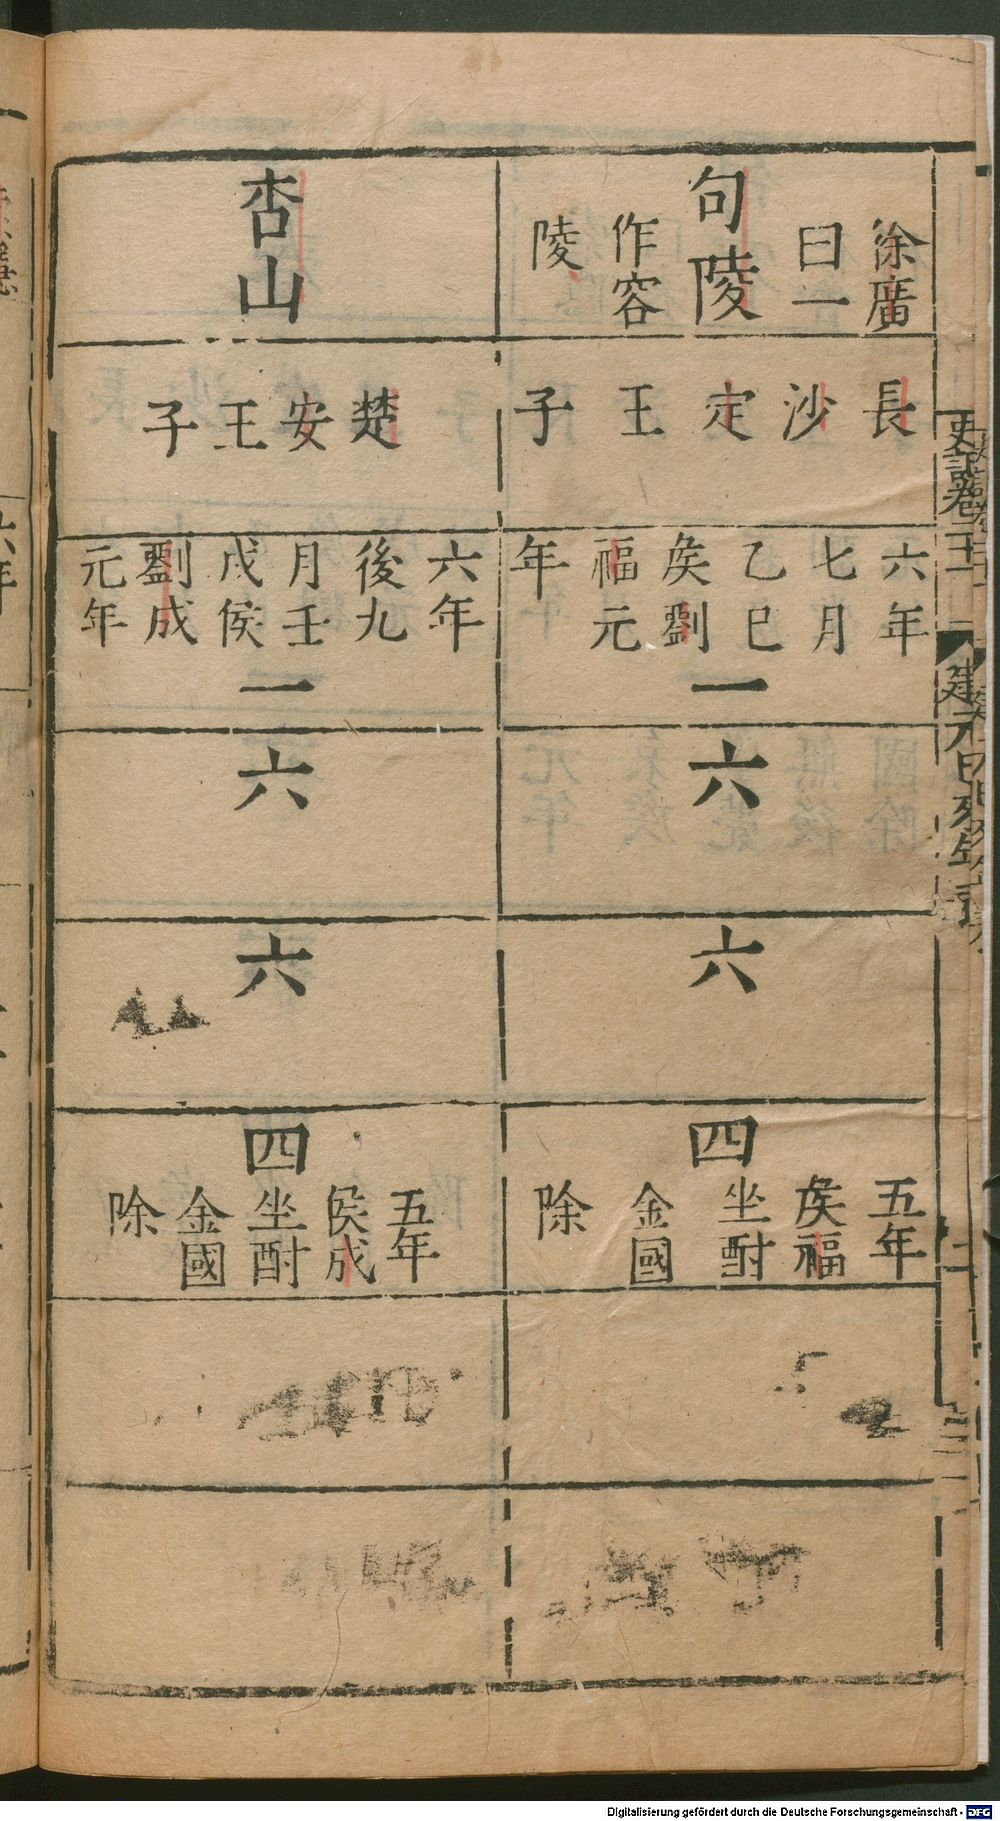 句陵
徐廣
曰一
作容
陵
長沙定王子
六年
七月
乙巳
侯劉
福元
年
一
六
六
四
五年
侯福
坐酎
金國
除
杏山
楚安王子
六年
後九
月壬
戌侯
劉成
元年
一
六
六
四
五年
侯成
坐酎
金國
除
史記卷二十一
六年
Digitalisierung gefördert durch die Deutsche Forschungsgemeinschaft - DFG